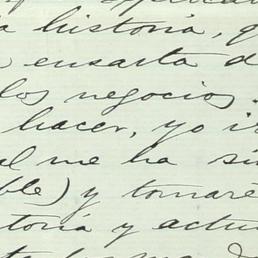 a historia, q
ensarta d
los negocios.
hacer, yo i
al me ha si
ble) y tomare
toria y actu